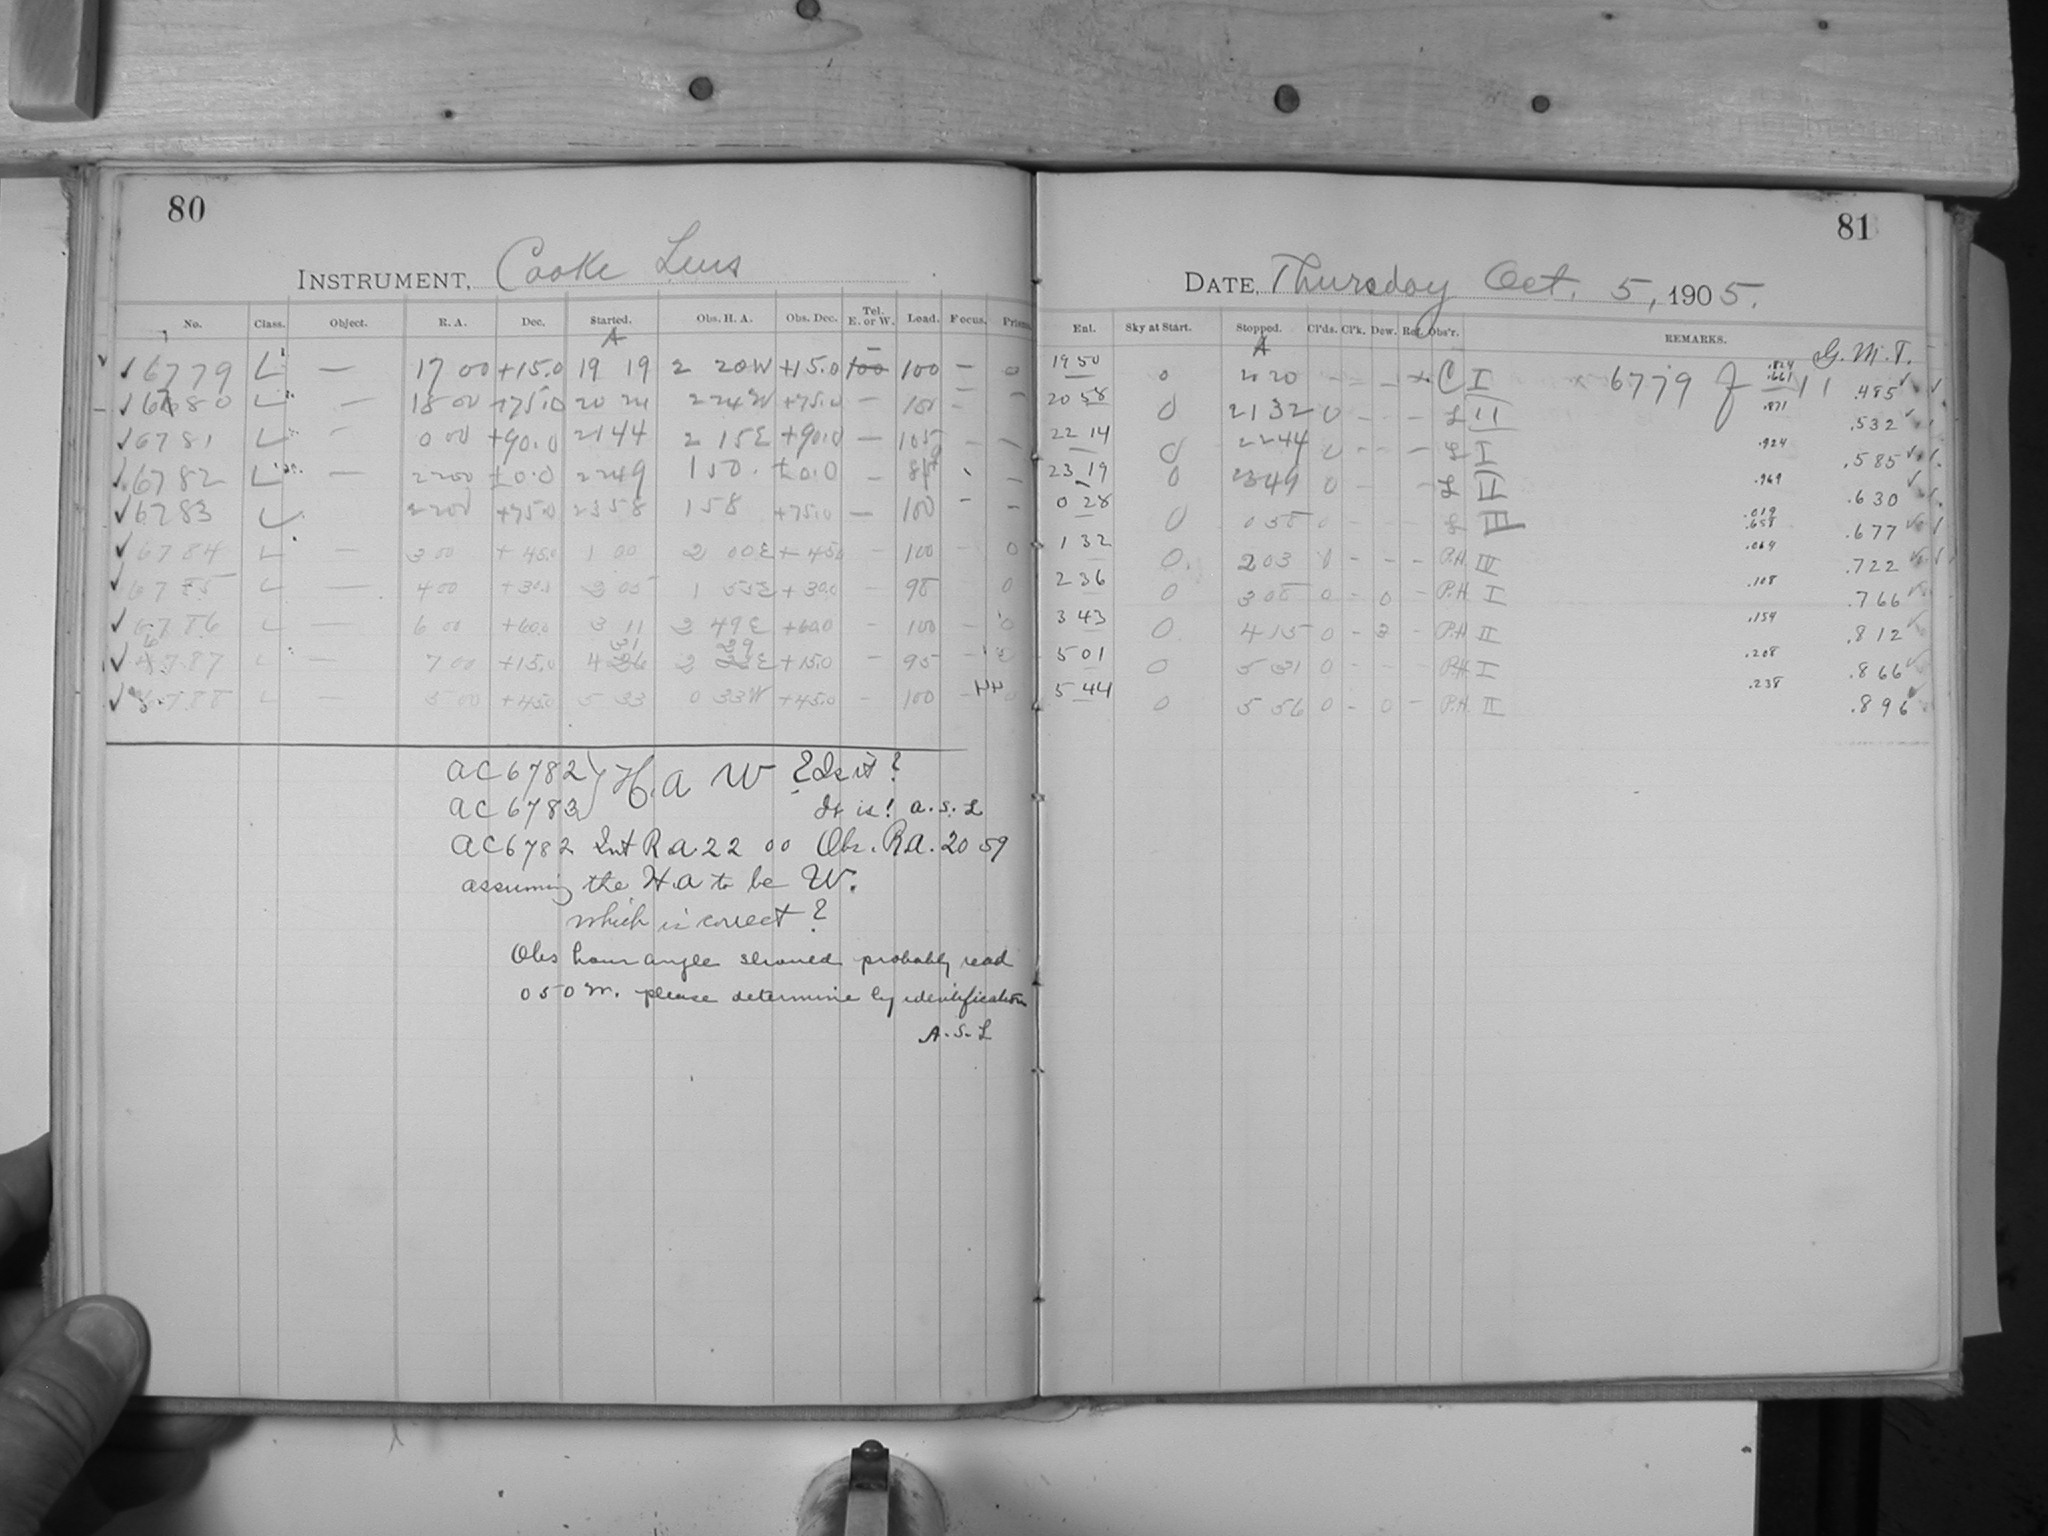 80
INSTRUMENT, Cooke Lens
No. Class. Object. R. A. Dec. Started. Obs. H. A. Obs. Dec. Tel. E. or W. Load. Focus. Prism
A
✓ 6779 L — 17 00 +15.0 19 19 2 20W +15.0 100 100 — 0
✓ 6780 L — 18 00 +75.0 20 24 2 24W +75.0 — 100 — —
✓ 6781 L — 0 00 +90.0 21 44 2 15E +90.0 — 105 — —
✓ 6782 L — 22 00 ±0.0 22 49 1 50. ±0.0 — —
✓ 6783 L 22 00 +75.0 23 58 1 58 +75.0 — 100 — —
✓ 6784 L — 3 00 +45.0 1 00 2 00E +45.0 — 100 — 0
✓ 6785 L — 4 00 +30.0 3 05 1 55E +30.0 — 95 0
✓ 6786 L — 6 00 +60.0 3 11 2 49E +60.0 — 100 — 0
✓ 6787 L — 7 00 +15.0 4 31 2 29E +15.0 — 95 — 0
✓ 6788 L — 5 00 +45.0 5 33 0 33W +45.0 — 100 — 0
AC 6782 } H. A W ? Is it?
AC 6783 It is! A. S. L
AC 6782 Int R A 22 00 Obs. R.A. 20 59
assuming the H.A to be W.
which is correct?
Obs hour angle should probably read
0 50 W. please determine by identification
A. S. L
81
DATE, Thursday Oct. 5, 1905.
Enl. Sky at Start. Stopped. Cl'ds. Cl'k. Dew. Ref. Obs'r. REMARKS.
A G. M. T.
19 50 0 20 20 — — — C I × 6779 .485 ✓
20 58 0 21 32 0 — — — L II .871 .532 ✓
22 14 0 22 44 0 — — — L I .924 .585 ✓
23 19 0 23 49 0 — — L II .969 .630 ✓
0 28 0 0 58 0 — — — L III .019 .677 ✓
1 32 0. 2 03 0 — — — P.H. IV .064 .722 ✓
2 36 0 3 08 0 — 0 — P.H. I .108 .766 ✓
3 43 0 4 15 0 — 2 — P.H. II .154 .812 ✓
5 01 0 5 31 0 — — — P.H. I .208 .866 ✓
5 44 0 5 56 0 — 0 — P.H. II .238 .896 ✓